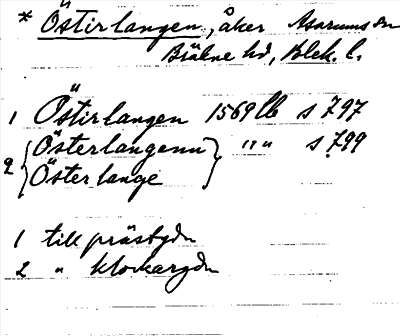 * Östirlangen, åker Asarums sn
Bräkne hd, Blek. l.
1 Östirlangen 1569 lb s 797
2 { Österlangenn } " " s 799
Österlange
1 till prästgdn
2 " klockargdn